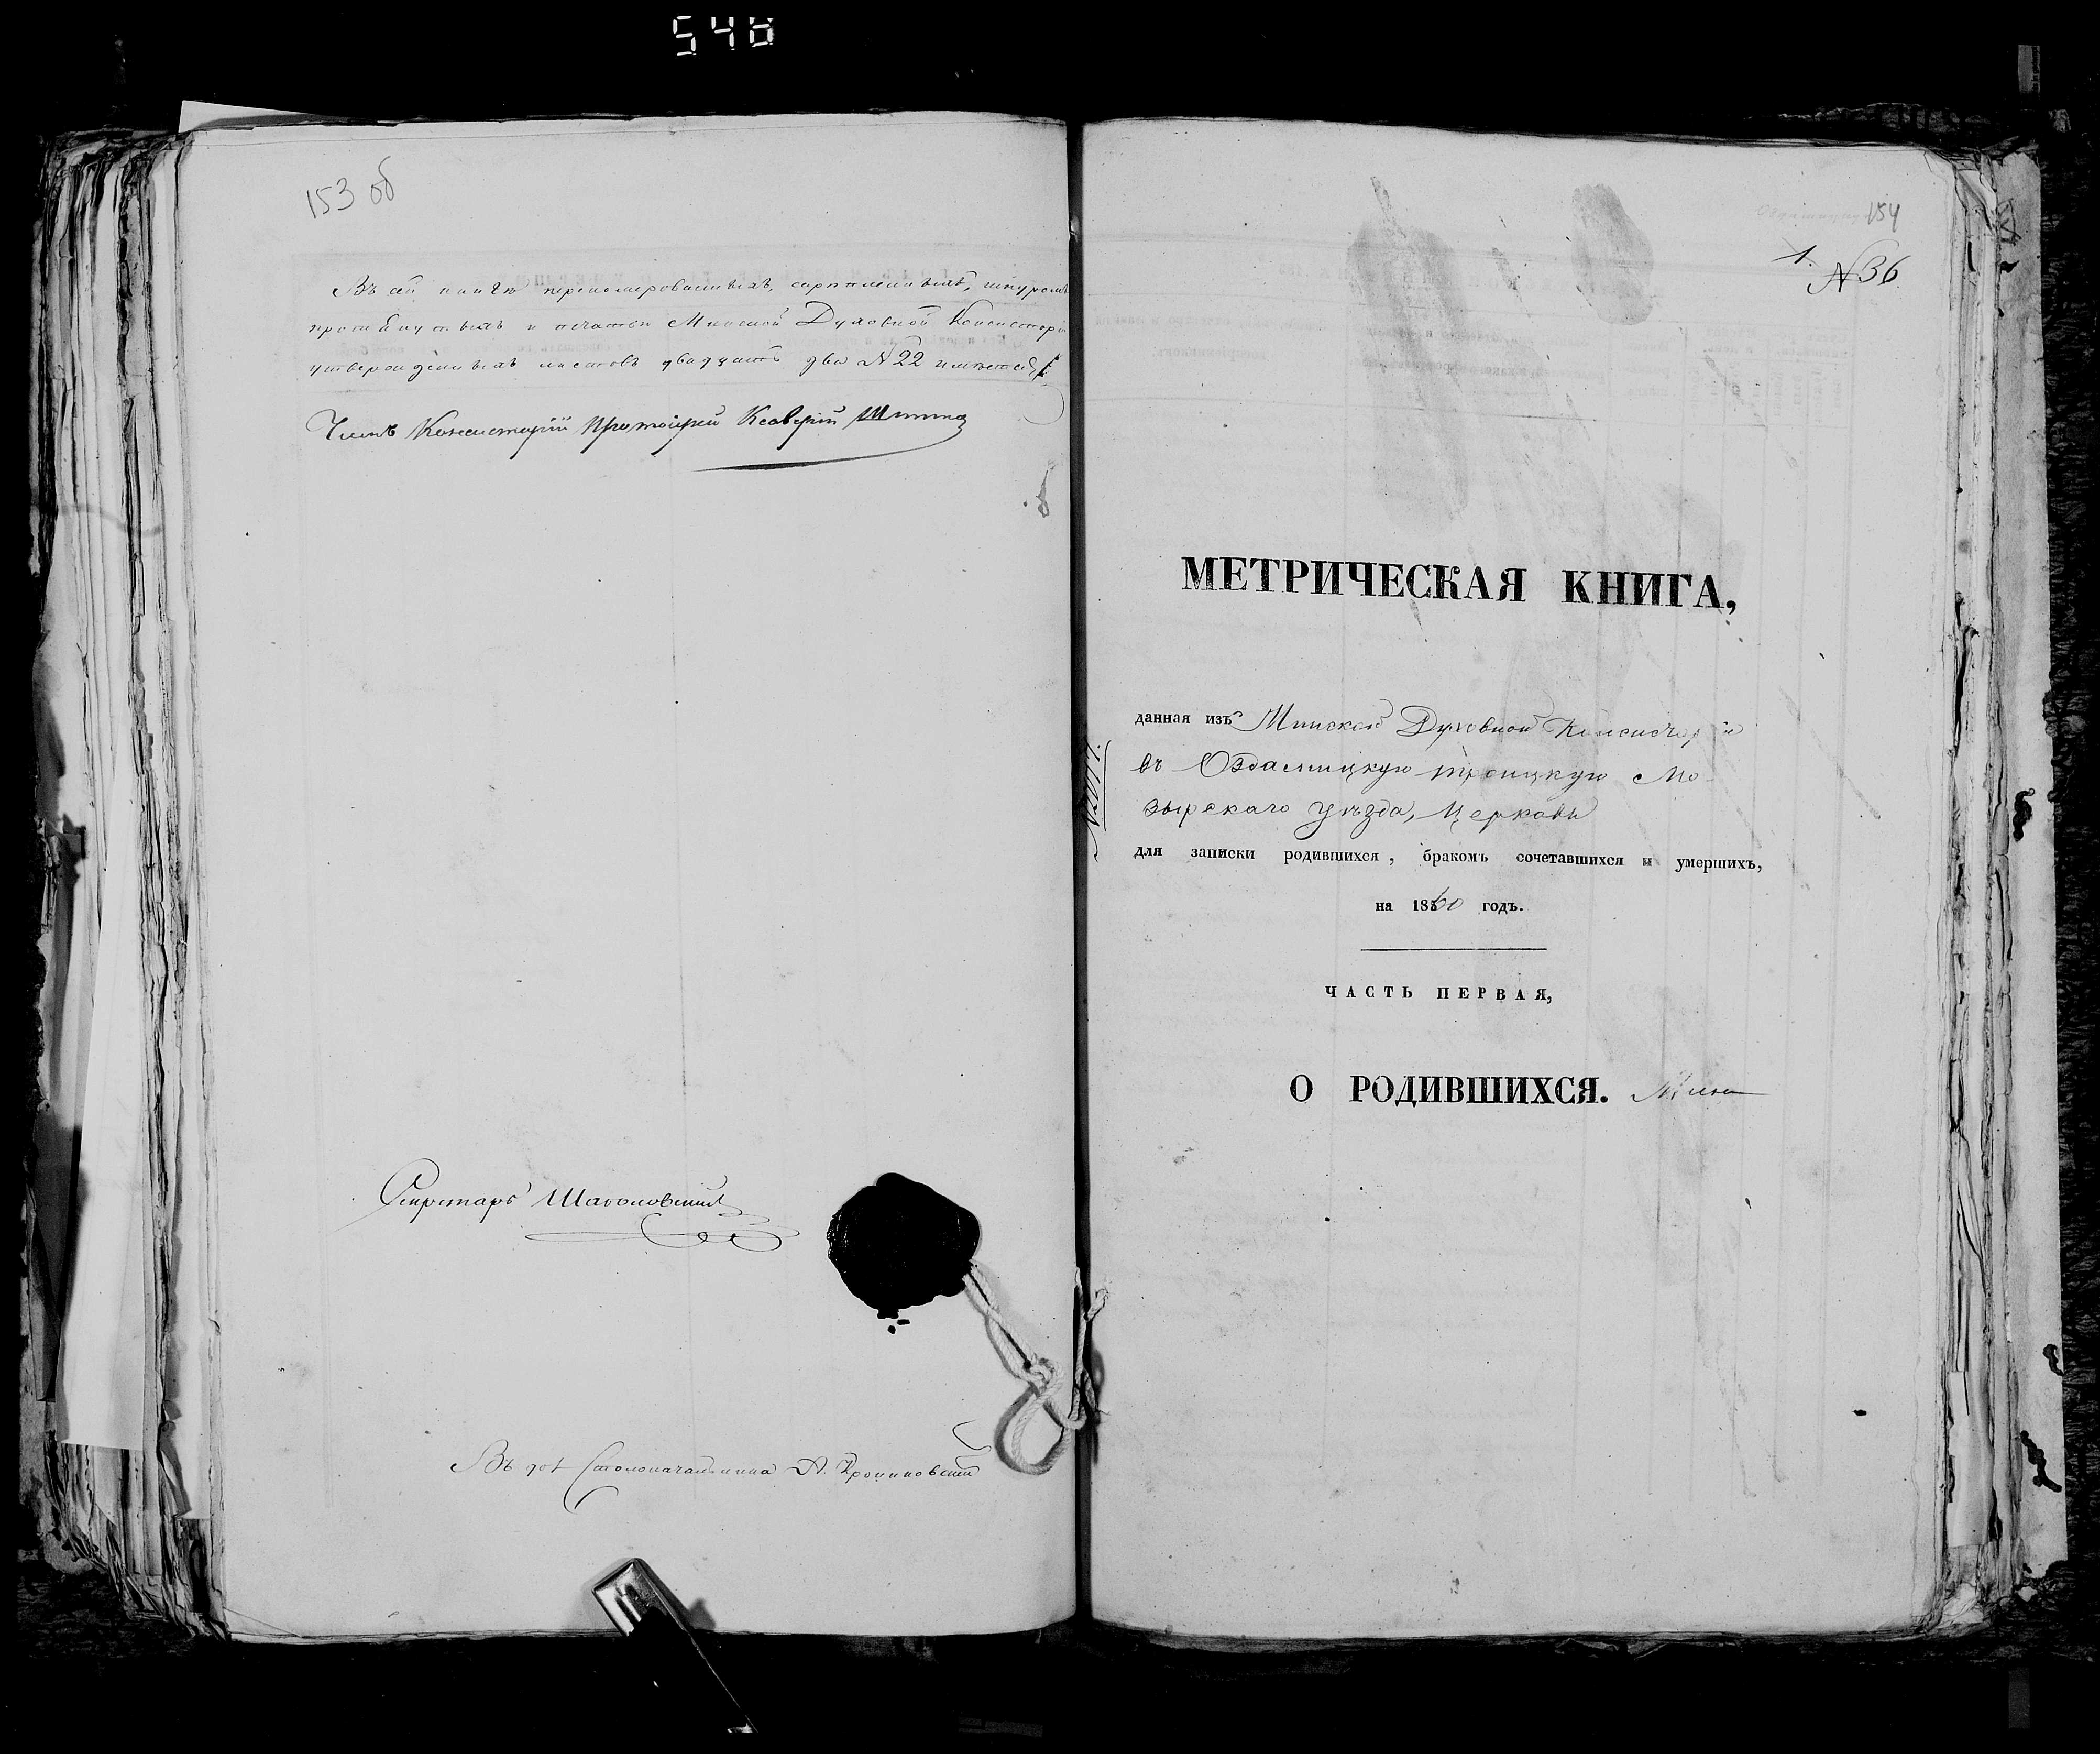 548
153 об
Въ сей книгѣ перенумерованныхъ, скрѣпленныхъ, шнуромъ
протянутыхъ и печатью Минской Духовной Консисторіи
утвержденныхъ листовъ двадцать два № 22 имѣется
Членъ Консисторіи Протоіерей Ксаверій
Секретарь
Въ дол Столоначальника А.
154
1.
№36
МЕТРИЧЕСКАЯ КНИГА,
данная изъ Минской Духовной Консисторіи
въ Оздамицкую Троицкую Мо-
зырскаго уѣзда, Церковь
для записки родившихся, бракомъ сочетавшихся и умершихъ,
на 1860 годъ.
ЧАСТЬ ПЕРВАЯ,
О РОДИВШИХСЯ.